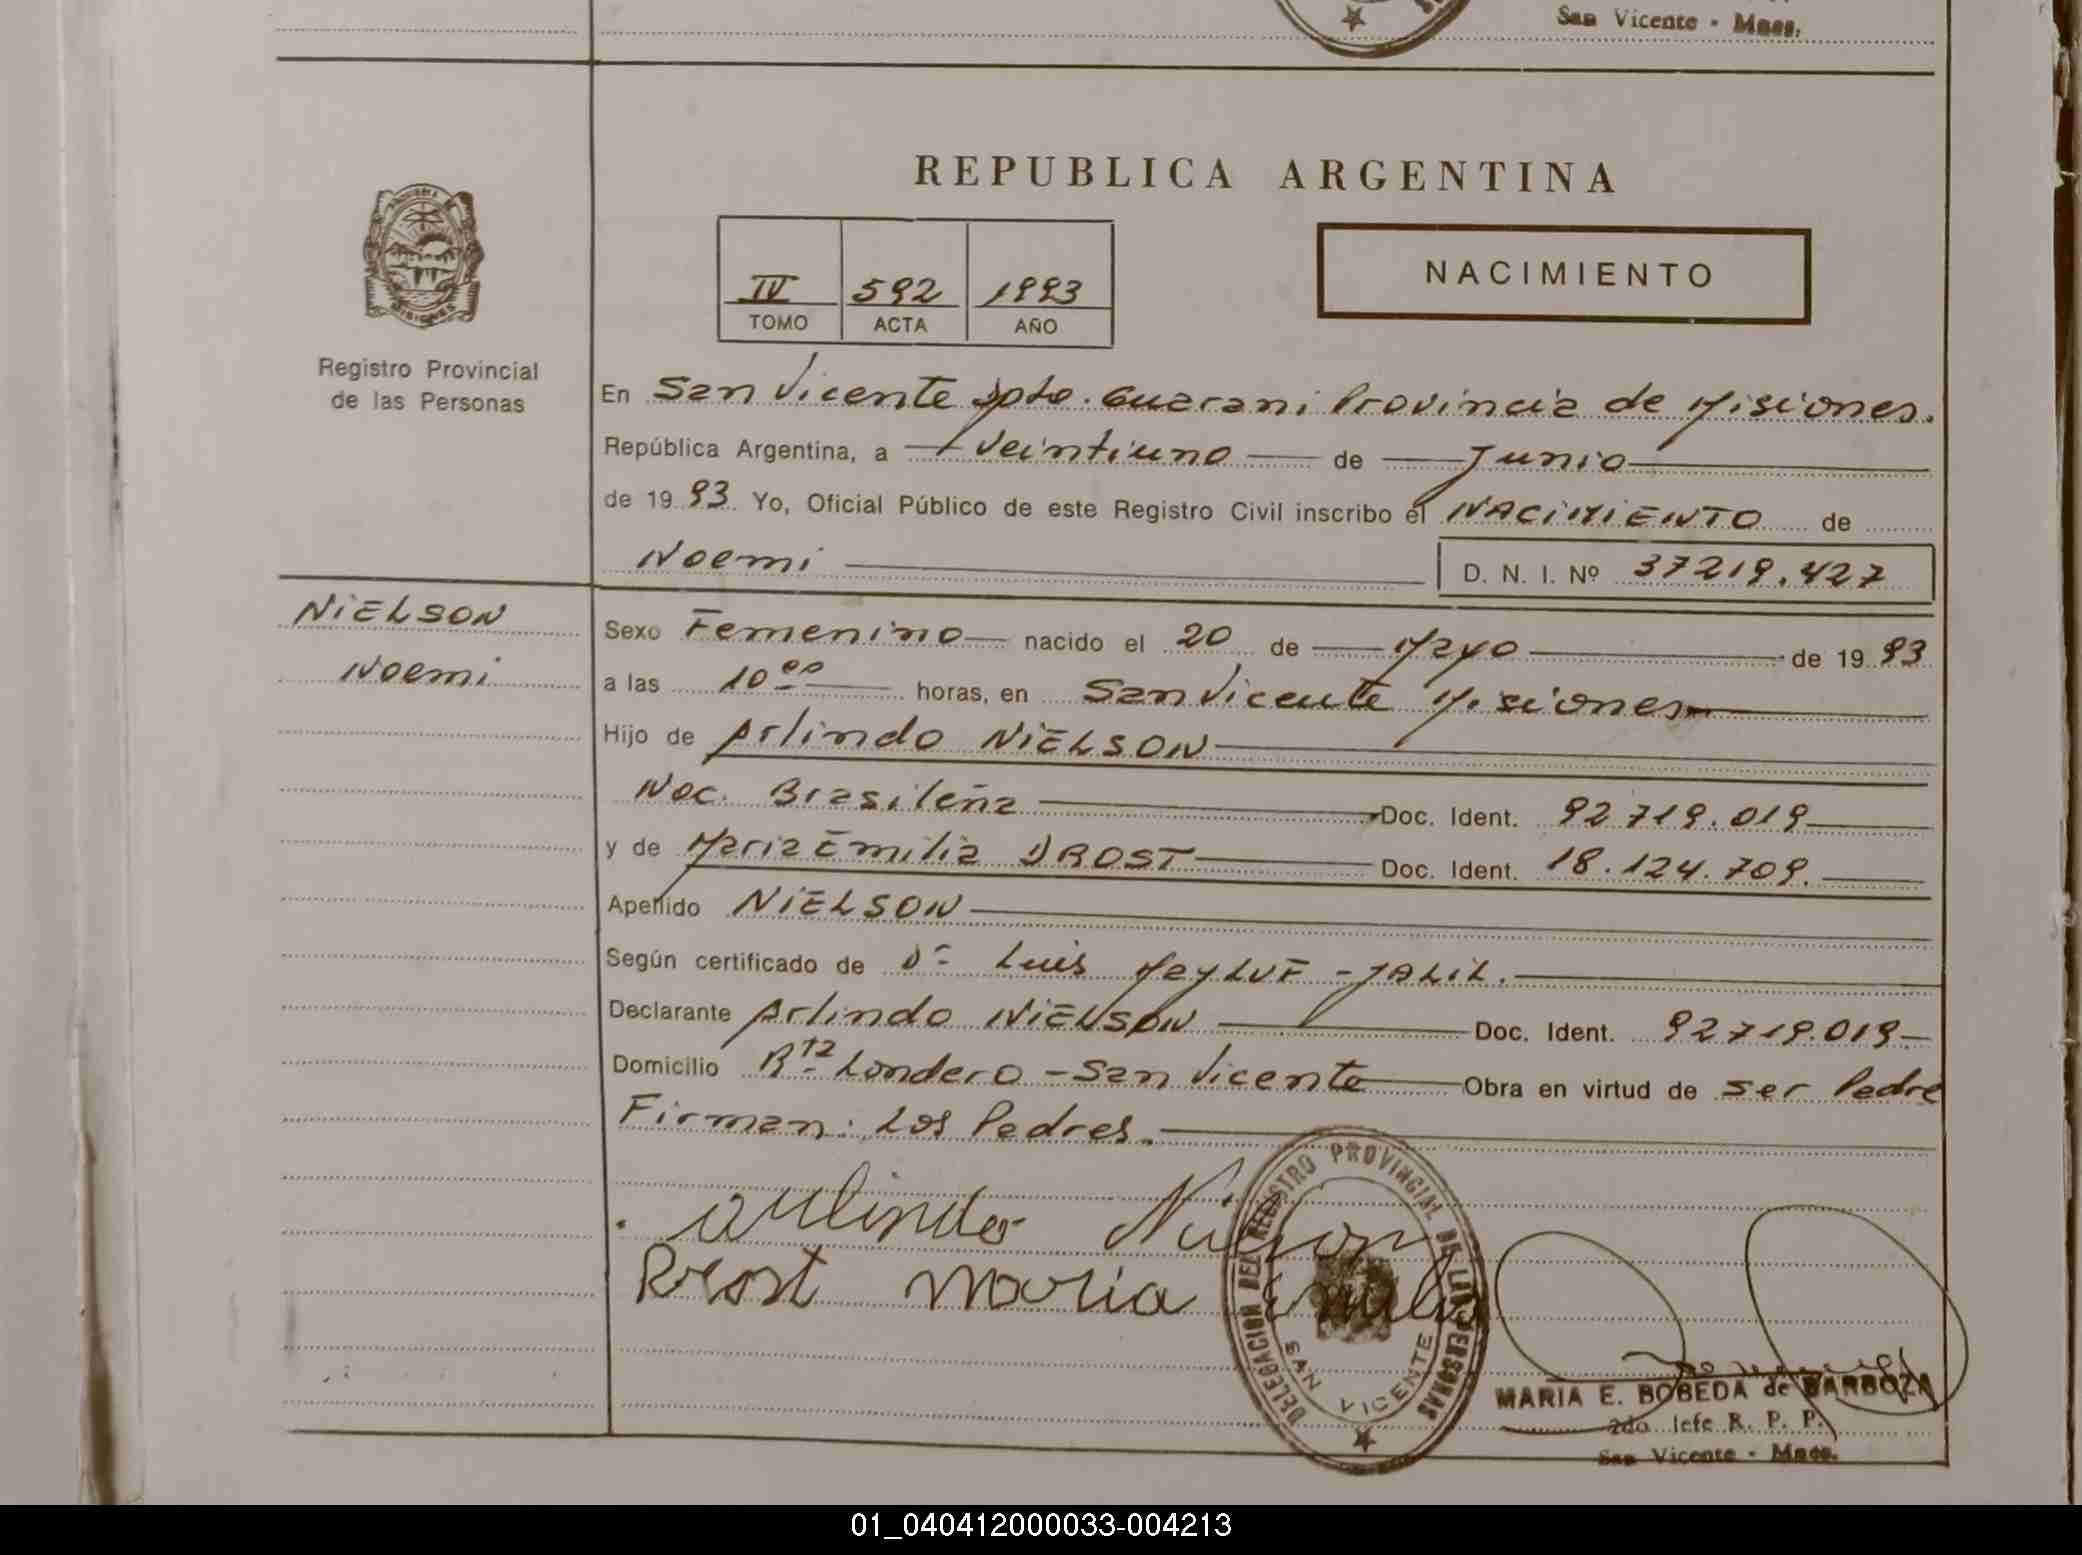 San Vicente - Mnes.
REPUBLICA ARGENTINA
IV 592 1993
TOMO ACTA AÑO
NACIMIENTO
Registro Provincial
de las Personas
En San Vicente Dpto. Guarani Provincia de Misiones.
República Argentina, a veintiuno de Junio
de 1993 Yo, Oficial Público de este Registro Civil inscribo el NACIMIENTO de
Noemi D. N. I. Nº 37219.427
NIELSON
Noemi
Sexo Femenino nacido el 20 de Mayo de 1993
a las 10 00 horas, en San Vicente Misiones
Hijo de Arlindo NIELSON
Nac. Brasileña Doc. Ident. 92719.019
y de Maria Emilia DROST Doc. Ident. 18.124.709.
Apellido NIELSON
Según certificado de Dr Luis - JALIL.
Declarante Arlindo NIELSON Doc. Ident. 92719.019
Domicilio Rta Londero - San Vicente Obra en virtud de ser Padre
Firman: Los Padres.
Arlindo Nielson
Drost Maria Emilia
DELEGACION DEL REGISTRO PROVINCIAL DE LAS PERSONAS
SAN VICENTE
MARIA E. BOBEDA de BARBOZA
2do Jefe R. P. P.
San Vicente - Mnes.
01_040412000033-004213